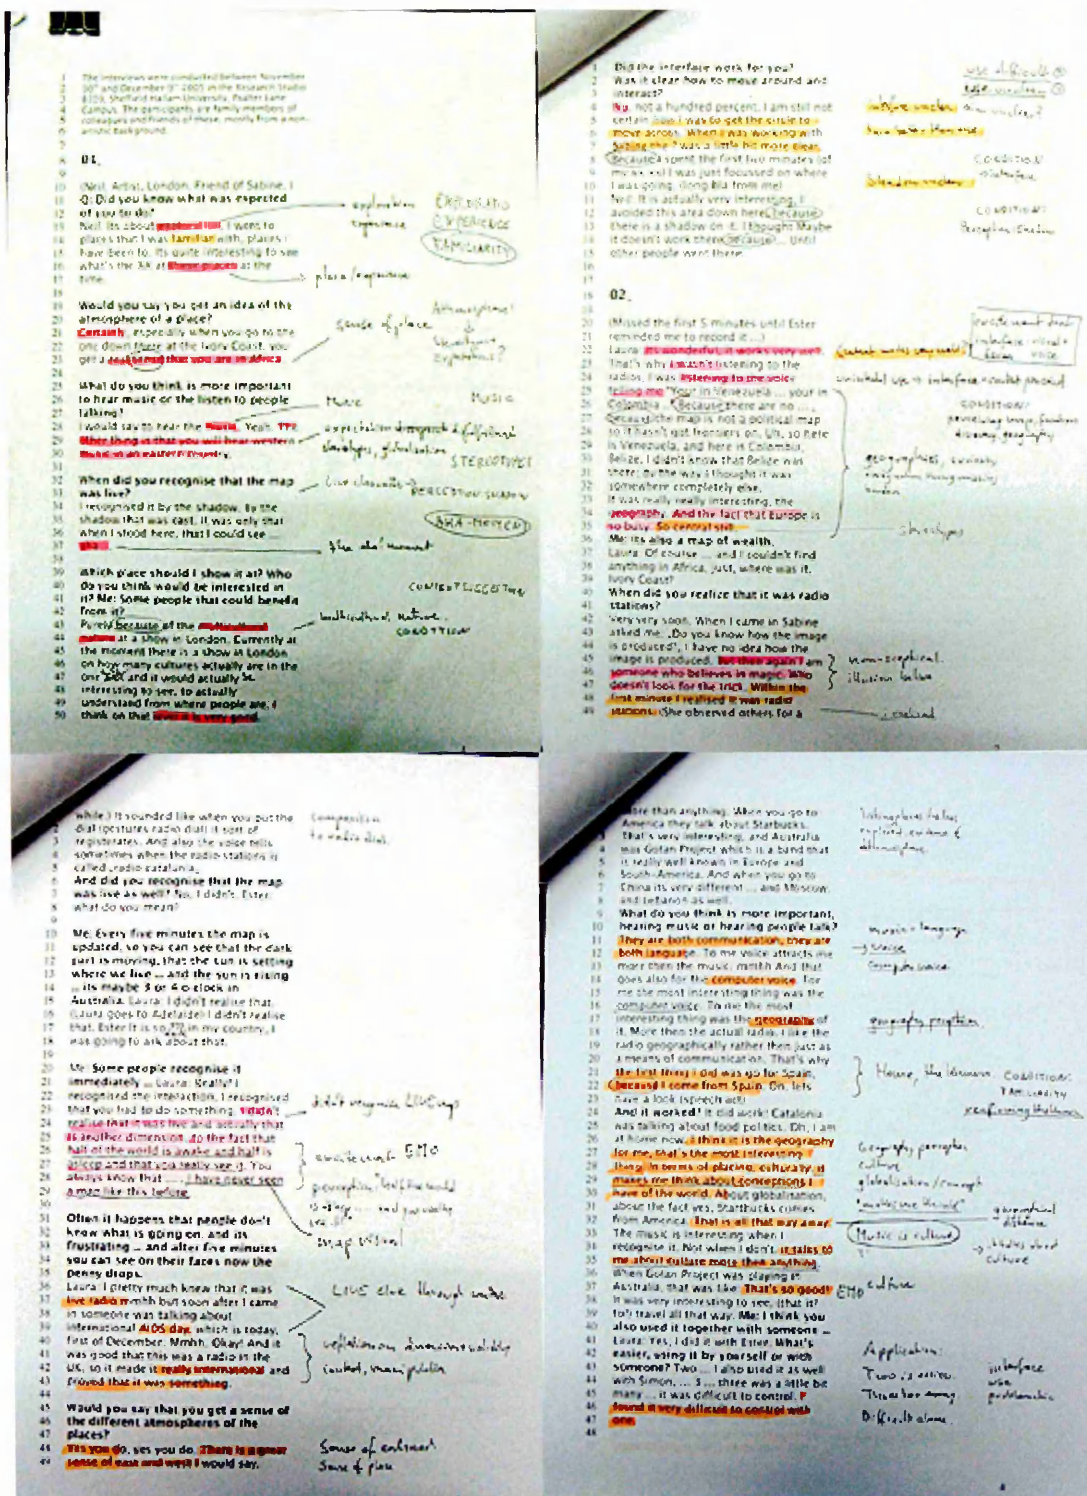 The interviews were conducted between November
30th and December 9th 2005 in the Research Studio
Sheffield Hallam University, Psalter Lane
Campus. The participants are family members of
colleagues and friends of these, mostly from a non-
artistic background.
01.
(Neil, Artist, London, Friend of Sabine, )
Q: Did you know what was expected
of you to do?
Neil: Its about I went to
places that I was familiar with, places I
have been to. Its quite interesting to see
what's the at these places at the
time.
Would you say you get an idea of the
atmosphere of a place?
Certainly, especially when you go to the
one down there at the Ivory Coast, you
get a that you are in Africa
What do you think is more important
to hear music or the listen to people
talking?
I would say to hear the music. Yeah. The
other thing is that you will hear western
music in an eastern country.
When did you recognise that the map
was live?
I recognised it by the shadow, by the
shadow that was cast. It was only that
when I stood here, that I could see ...
aha.
Which place should I show it at? Who
do you think would be interested in
it? Me: Some people that could benefit
from it?
Purely because of the multicultural
nature at a show in London. Currently at
the moment there is a show in London
on how many cultures actually are in the
one and it would actually be
interesting to see, to actually
understand from where people are. I
think on that level it is very good.
exploration
experience
EXPERIENCE
FAMILIARITY
place/experience
sense of place
Music
MUSIC
STEREOTYPES
AHA-MOMENT
CONDITION
Did the interface work for you?
Was it clear how to move around and
interact?
No, not a hundred percent. I am still not
certain how I was to get the circle to
move across. When I was working with
Sabine she ? was a little bit more clear.
Because I spent the first two minutes (of
my ) I was just focussed on where
I was going. (long bla from me)
Neil: It is actually very interesting, I
avoided this area down here because
there is a shadow on it. I thought Maybe
it doesn't work there because ... Until
other people went there.
use difficult
interface unclear
CONDITION:
interface
CONDITION:
Perception Shadow
02.
(Missed the first 5 minutes until Ester
reminded me to record it ...)
Laura: Its wonderful, it works very well.
That's why I wasn't listening to the
radios, I was listening to the voice
telling me "Your in Venezuela ... your in
Colombia ... Because there are no ...
because the map is not a political map
so it hasn't got frontiers on. Uh, so here
is Venezuela, and here is Colombia,
Belize, I didn't know that Belize was
there, by the way I thought it was
somewhere completely else.
It was really really interesting, the
geography. And the fact that Europe is
so busy. So central still.
Me: Its also a map of wealth.
Laura: Of course ... and I couldn't find
anything in Africa, just, where was it,
Ivory Coast?
When did you realize that it was radio
stations?
Very very soon. When I came in Sabine
asked me: „Do you know how the image
is produced", I have no idea how the
image is produced. But then again I am
someone who believes in magic. Who
doesn't look for the trick. Within the
first minute I realised it was radio
stations. (She observed others for a
CONDITION:
stereotype
illusion
while.) It sounded like when you put the
dial (gestures radio dial) it sort of
registerates. And also the voice tells
sometimes when the radio stations is
called „radio catalunia„
And did you recognise that the map
was live as well? No, I didn't. Ester:
what do you mean?
Me: Every five minutes the map is
updated, so you can see that the dark
part is moving, that the sun is setting
where we live ... and the sun is rising
... its maybe 3 or 4 o clock in
Australia. Laura: I didn't realise that.
(Laura goes to Adelaide) I didn't realise
that. Ester It is so in my country, I
was going to ask about that.
Me: Some people recognise it
immediately ... Laura: Really? I
recognised the interaction, I recognised
that you had to do something. I didn't
realise that it was live and actually that
is another dimension, to the fact that
half of the world is awake and half is
asleep and that you really see it. You
always know that ... , I have never seen
a map like this before.
Often it happens that people don't
know what is going on, and its
frustrating ... and after five minutes
you can see on their faces now the
penny drops.
Laura: I pretty much knew that it was
live radio mmhh but soon after I came
in someone was talking about
international AIDS day, which is today,
first of December. Mmhh. Okay! And it
was good that this was a radio in the
UK, so it made it really international and
proved that it was something.
Would you say that you get a sense of
the different atmospheres of the
places?
Yes you do, yes you do. There is a great
sense of east and west I would say.
Comparison
to radio dial
excitement EMO
map visual
LIVE clue through
Sense of
Sense of place
More than anything. When you go to
America they talk about Starbucks.
That's very interesting, and Australia
was Gotan Project which is a band that
is really well known in Europe and
South-America. And when you go to
China its very different ... and Moscow,
and Lebanon as well.
What do you think is more important,
hearing music or hearing people talk?
They are both communication, they are
both language. To me voice attracts me
more then the music, mmhh And that
goes also for the computer voice. For
me the most interesting thing was the
computer voice. To me the most
interesting thing was the geography of
it. More then the actual radio, I like the
radio geographically rather then just as
a means of communication. That's why
the first thing I did was go for Spain,
because I come from Spain. Oh, lets
have a look (speech act)
And it worked! It did work! Catalonia
was talking about food politics. Oh, I am
at home now. I think it is the geography
for me, that's the most interesting
thing. In terms of placing, culturally, it
makes me think about conceptions I
have of the world. About globalisation,
about the fact yes, Starbucks comes
from America. That is all that way away.
The music is interesting when I
recognise it. Not when I don't. it talks to
me about culture more then anything.
When Gotan Project was playing in
Australia, that was like: That's so good!
It was very interesting to see, (that it?
to?) travel all that way. Me: I think you
also used it together with someone ...
Laura: Yes, I did it with Ester. What's
easier, using it by yourself or with
someone? Two ... I also used it as well
with Simon, ... 3 ... three was a little bit
many ... it was difficult to control. I
found it very difficult to control with
one.
music = language
voice
Computer voice
geography perception
CONDITION:
FAMILIARITY
Geography perception
culture
globalisation/concept
geographical
distance
Music is culture
culture
EMO culture
Application:
interface
use
problematic
Difficult alone